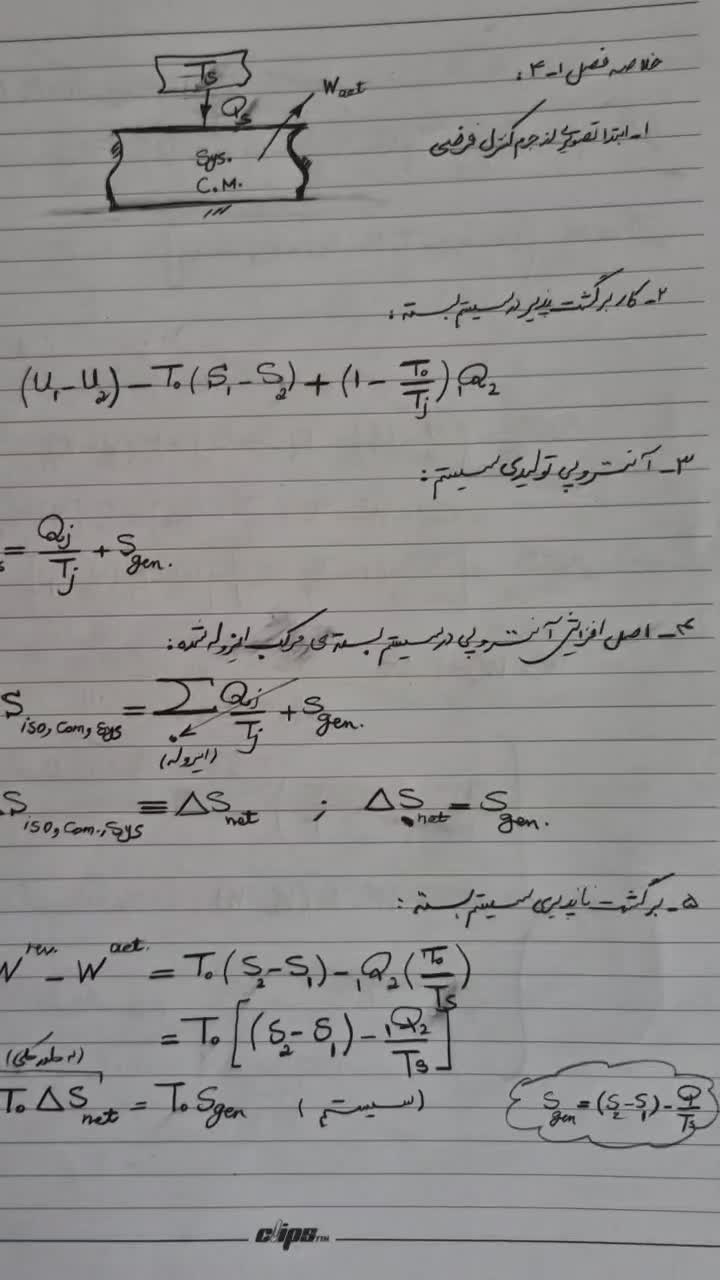 خلاصه فصل ۱-۴:
۱- ابتدا تصویری از جرم کنترل فرضی
Ts
Qs
Wact
Sys.
C.M.
۲- کار برگشت پذیر در سیستم بسته:
(U₁-U₂)-T₀(S₁-S₂)+(1-T₀/Tj)₁Q₂
۳- آنتروپی تولیدی سیستم:
s = Qj/Tj + Sgen.
۴- اصل افزایش آنتروپی در سیستم بسته‌ی مرکب ایزوله شده:
S iso, Com, Sys = Σ Qj/Tj + Sgen.
(ایزوله)
ΔS iso, Com., Sys ≡ ΔS net ; ΔS net = Sgen.
۵- برگشت ناپذیری سیستم بسته:
W rev. - W act. = T₀(S₂-S₁)-₁Q₂(T₀/Ts)
= T₀[(S₂-S₁)-₁Q₂/Ts]
(به طور کلی)
T₀ΔS net = T₀Sgen (سیستم)
Sgen = (S₂-S₁)-Q/Ts
clips